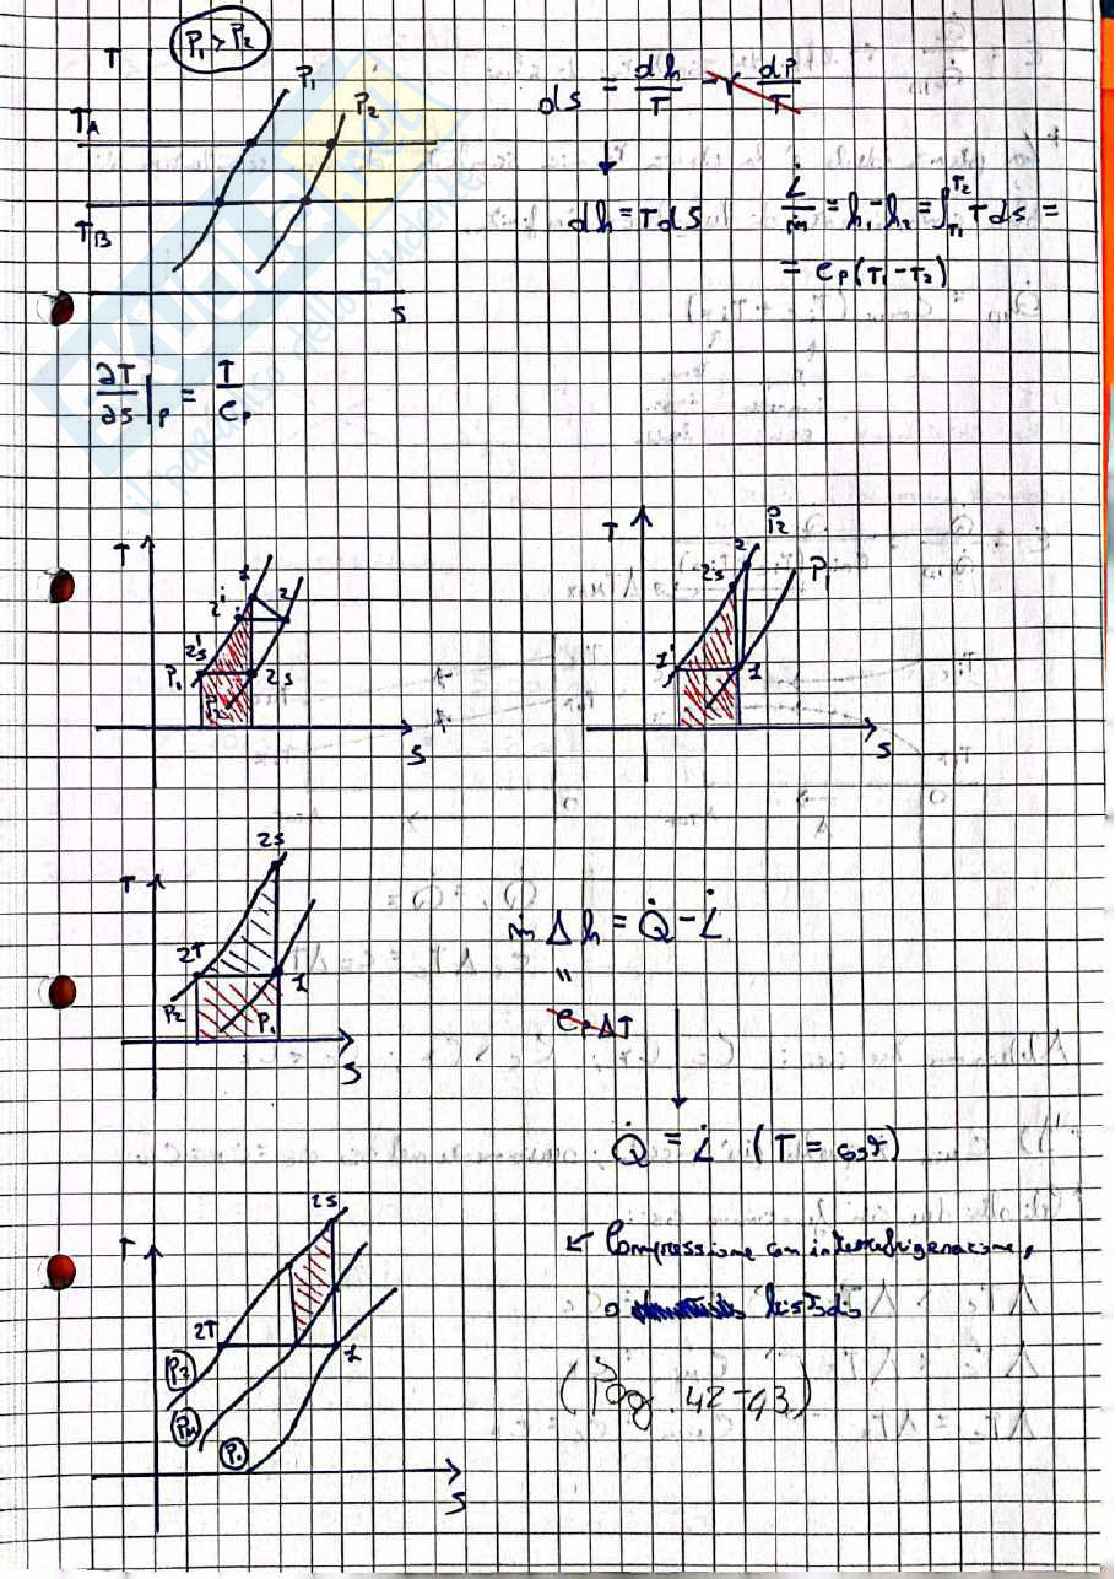 P₁ > P₂
T
P₁
P₂
T_A
T_B
S
ds = dh/T - v dP/T
dh = Tds
L̇/ṁ = h₁ - h₂ = ∫_T₁^T₂ T ds =
= c_P (T₁ - T₂)
∂T/∂s |_P = T/c_P
T
1
2'
2
2's
P₁
2s
P₂
S
T
P₂
2
2s
P₁
1'
1
S
T
2s
2T
1
P₂
P₁
S
ṁ Δh = Q̇ - L̇
"
c_P ΔT
Q̇ = L̇ (T = cost)
T
2s
2T
1
P₂
P_M
P₁
S
Compressione con interrefrigerazione,
o bistadio
(Pag. 42-43)
il paradiso dello studente